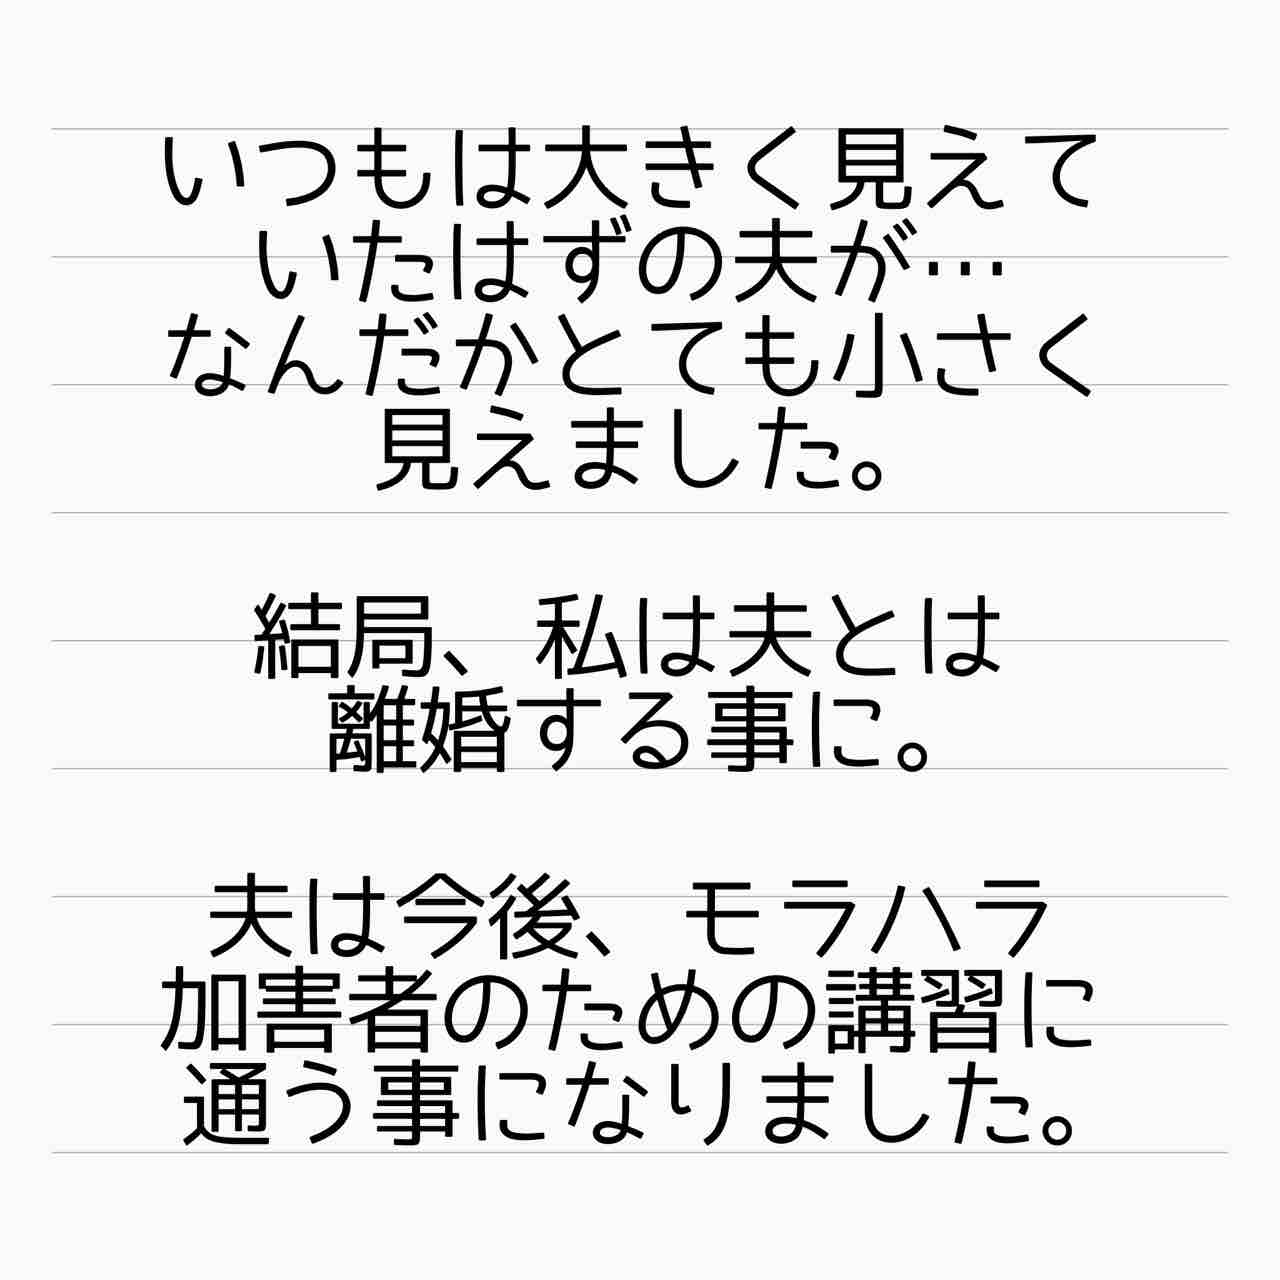 いつもは大きく見えて
いたはずの夫が…
なんだかとても小さく
見えました。
結局、私は夫とは
離婚する事に。
夫は今後、モラハラ
加害者のための講習に
通う事になりました。